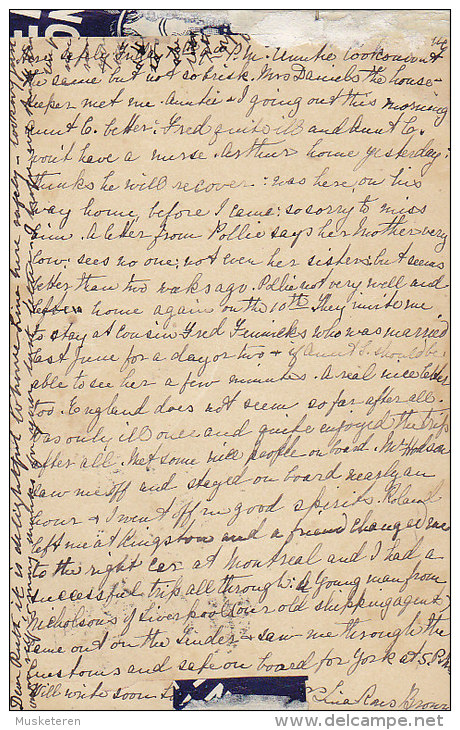 P.M. Auntie looks about
the same but not so brisk. Mrs Daniels the house-
keeper met me. Auntie & I going out this morning
Aunt C. better: Fred quite ill and Aunt C.
won't have a nurse. Arthur home yesterday:
thinks he will recover: was here, on his
way home, before I came: so sorry to miss
him. A letter from Pollie says her Mother very
low: sees no one; not even her sisters: but seems
better than two weeks ago. Pollie not very well and
home again on the 10th. They invite me
to stay at Cousin Fred Fenwicks who was married
last June for a day or two & if Aunt S. should be
able to see her a few minutes. A real nice letter
too. England does not seem so far after all.
Was only ill once and quite enjoyed the trip
after all. Met some nice people on board. Mr Hodson
saw me off and stayed on board nearly an
hour & I went off in good spirits. Roland
left me at Kingston and a friend changed me
to the right car at Montreal and I had a
successful trip all through: a young man from
Nicholson's of Liverpool (our old shipping agent)
came out on the Tender & saw me through the
customs and safe on board for York at 5 P.M.
Will write soon
Lina Ross Brown
Dear Ruth it is delightful to have Lina here safely - looking
Musketeren
delcampe.net